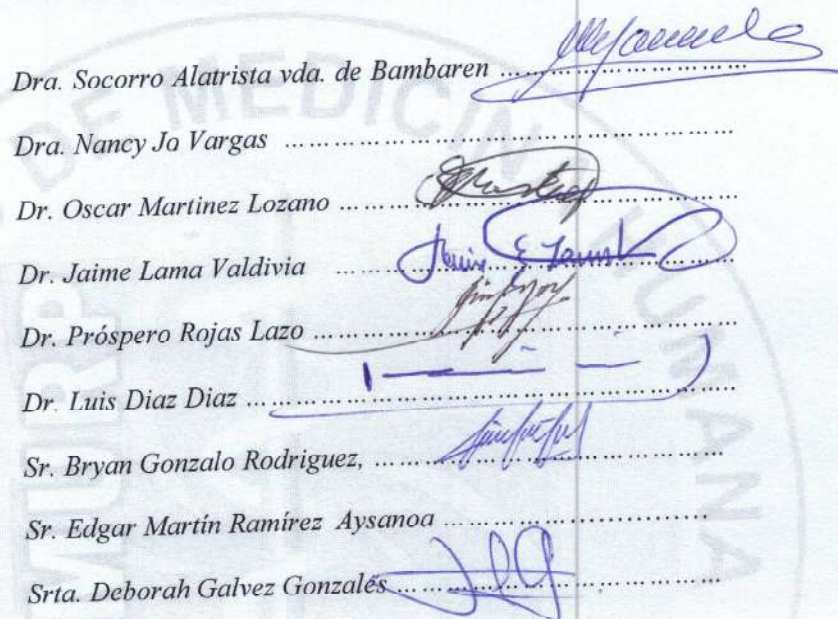 Dra. Socorro Alatrista vda. de Bambaren ..............................
Dra. Nancy Jo Vargas ..............................
Dr. Oscar Martinez Lozano ..............................
Dr. Jaime Lama Valdivia ..............................
Dr. Próspero Rojas Lazo ..............................
Dr. Luis Diaz Diaz ..............................
Sr. Bryan Gonzalo Rodriguez, ..............................
Sr. Edgar Martín Ramírez Aysanoa ..............................
Srta. Deborah Galvez Gonzales ..............................
DE MEDICINA HUMANA